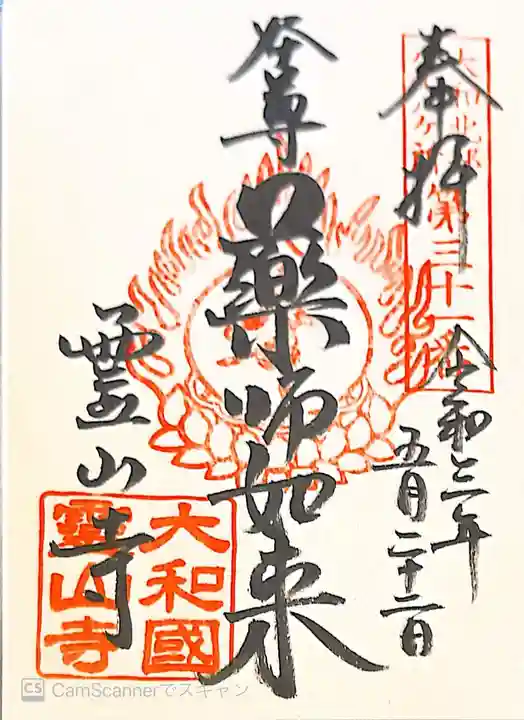 奉拝
第三十一番
令和三年
五月二十二日
登尊
薬師如来
霊山寺
大和國
霊山寺
CS CamScannerでスキャン